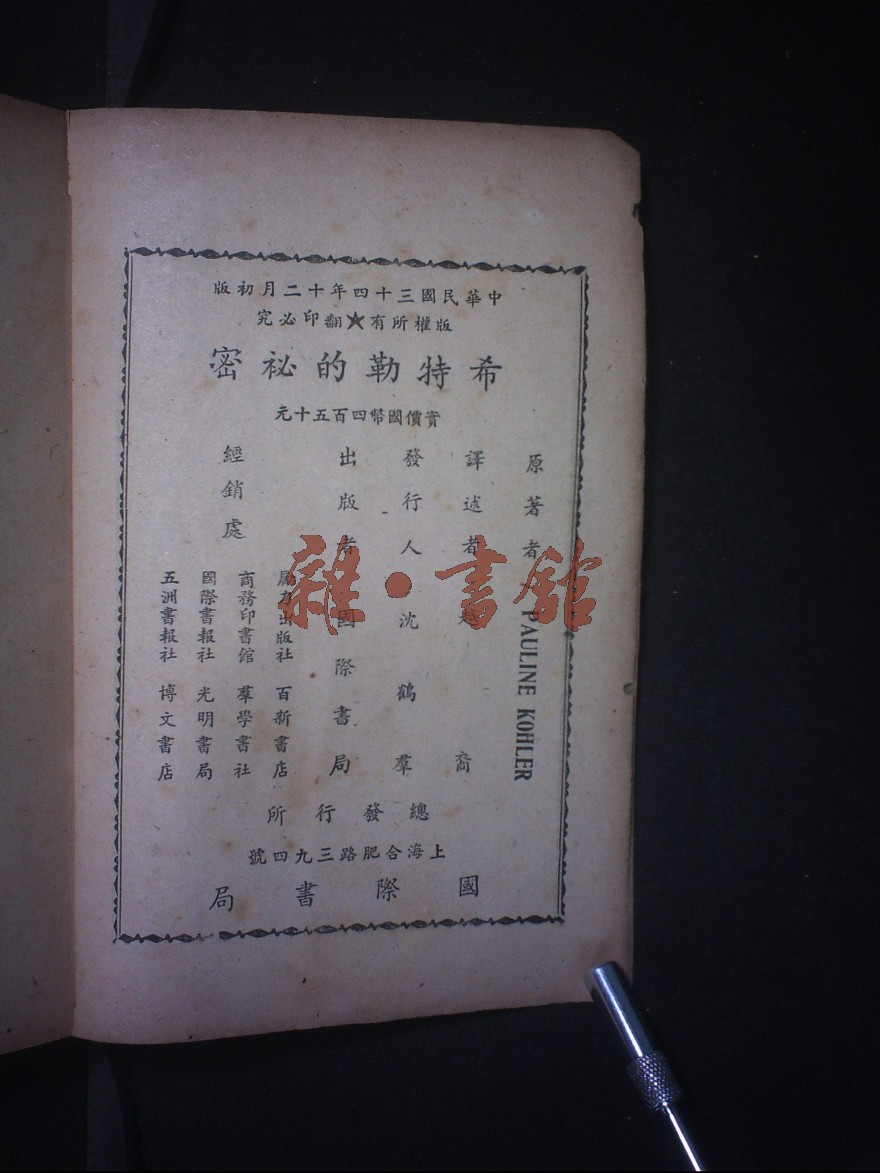 中華民國三十四年十二月初版
版權所有★翻印必究
希特勒的祕密
實價國幣四百五十元
原著者 PAULINE KOHLER
譯述者 越裔
發行人 沈鶴羣
出版者 國際書局
經銷處
勵力出版社 百新書店
商務印書館 羣學書社
國際書報社 光明書局
五洲書報社 博文書店
總發行所
上海合肥路三九四號
國際書局
雜·書館